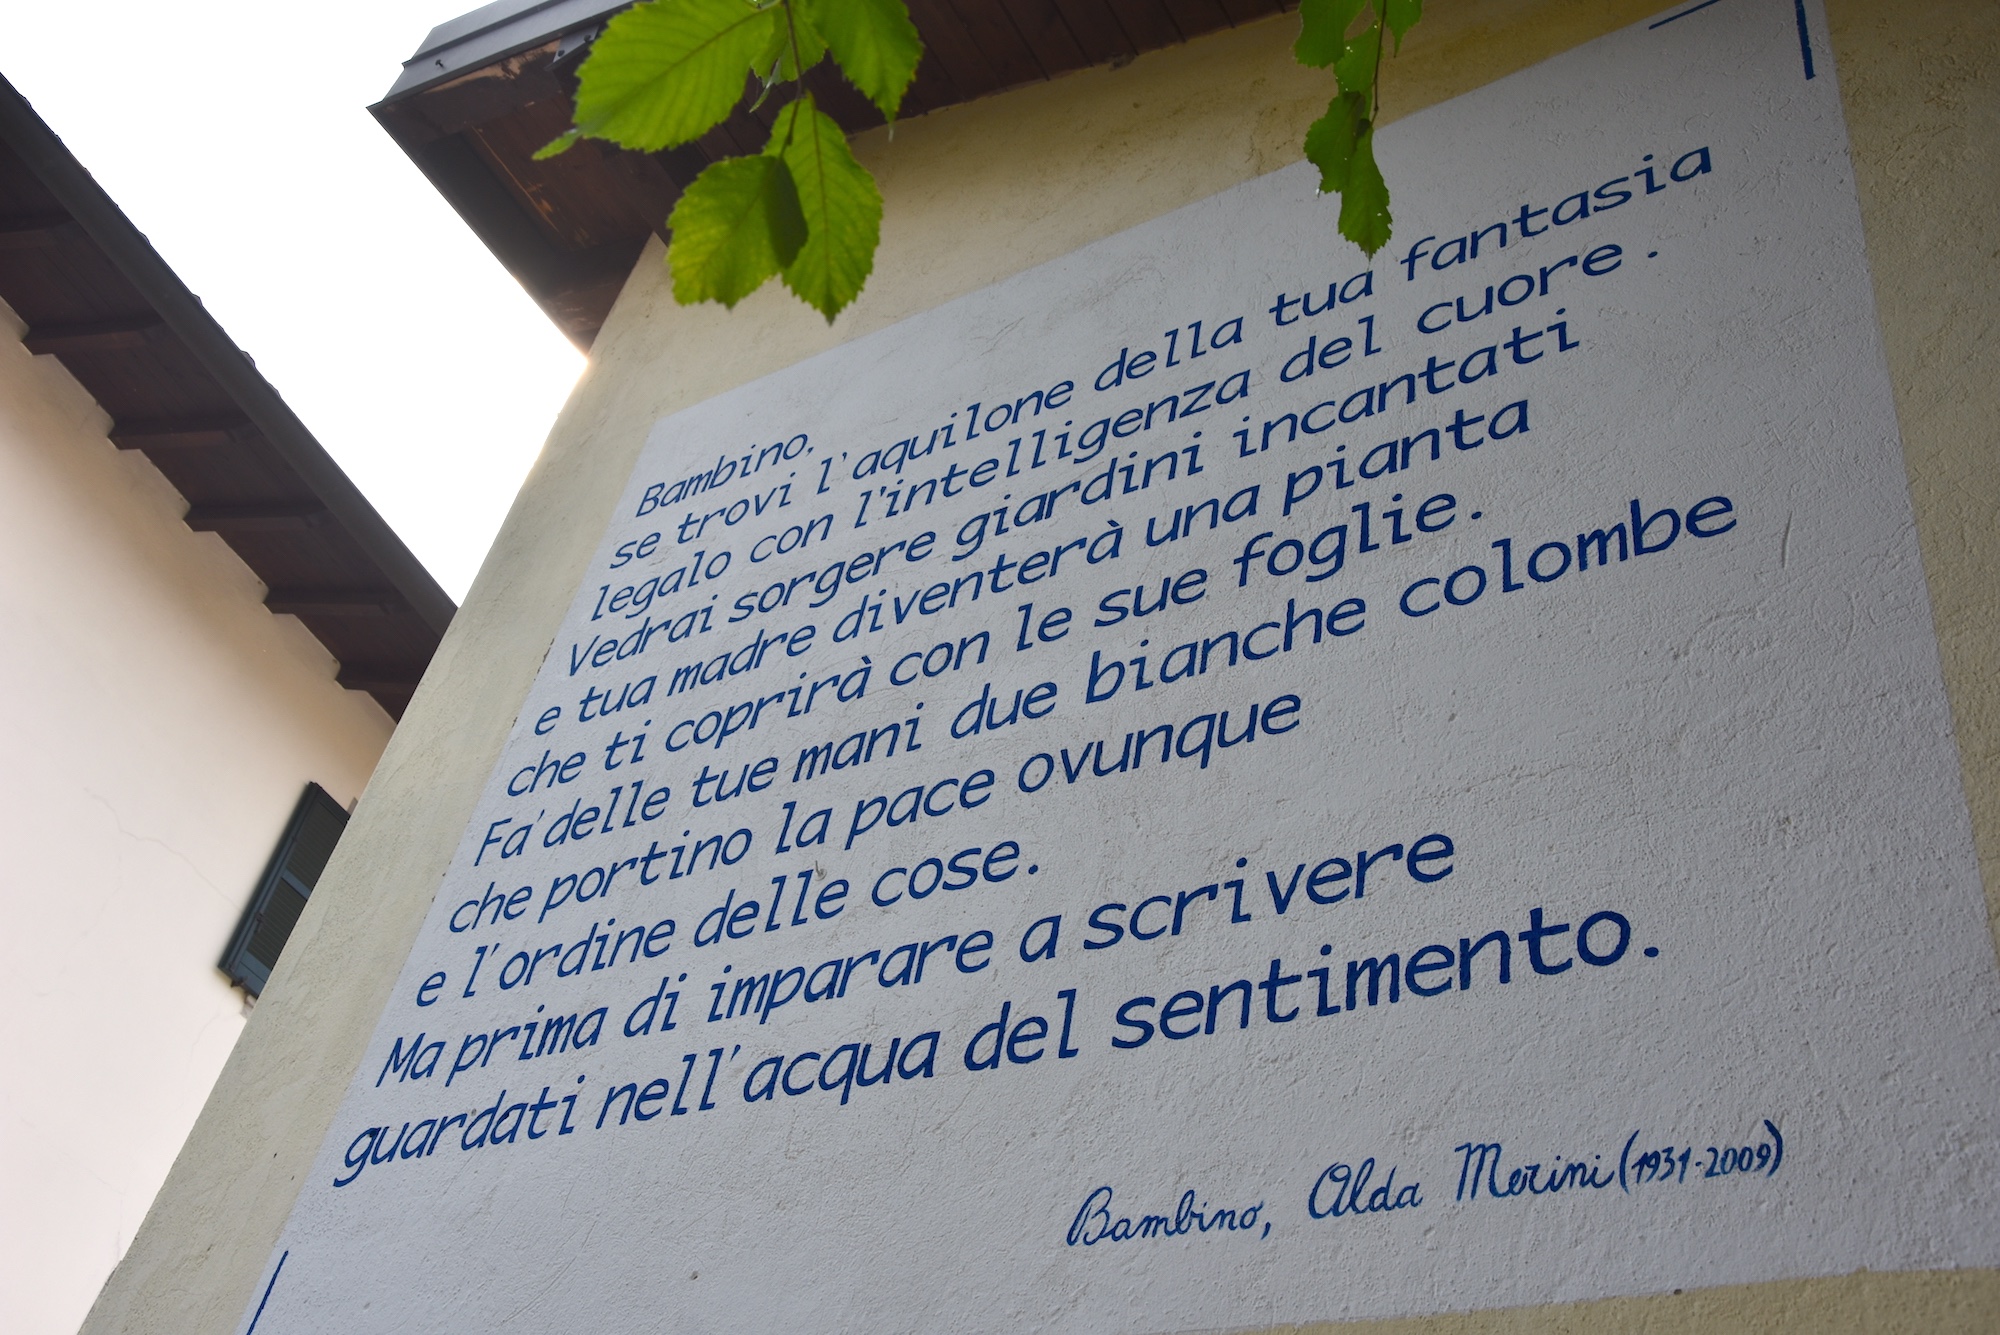 Bambino,
se trovi l'aquilone della tua fantasia
legalo con l'intelligenza del cuore.
Vedrai sorgere giardini incantati
e tua madre diventerà una pianta
che ti coprirà con le sue foglie.
Fa' delle tue mani due bianche colombe
che portino la pace ovunque
e l'ordine delle cose.
Ma prima di imparare a scrivere
guardati nell'acqua del sentimento.
Bambino, Alda Merini (1931-2009)